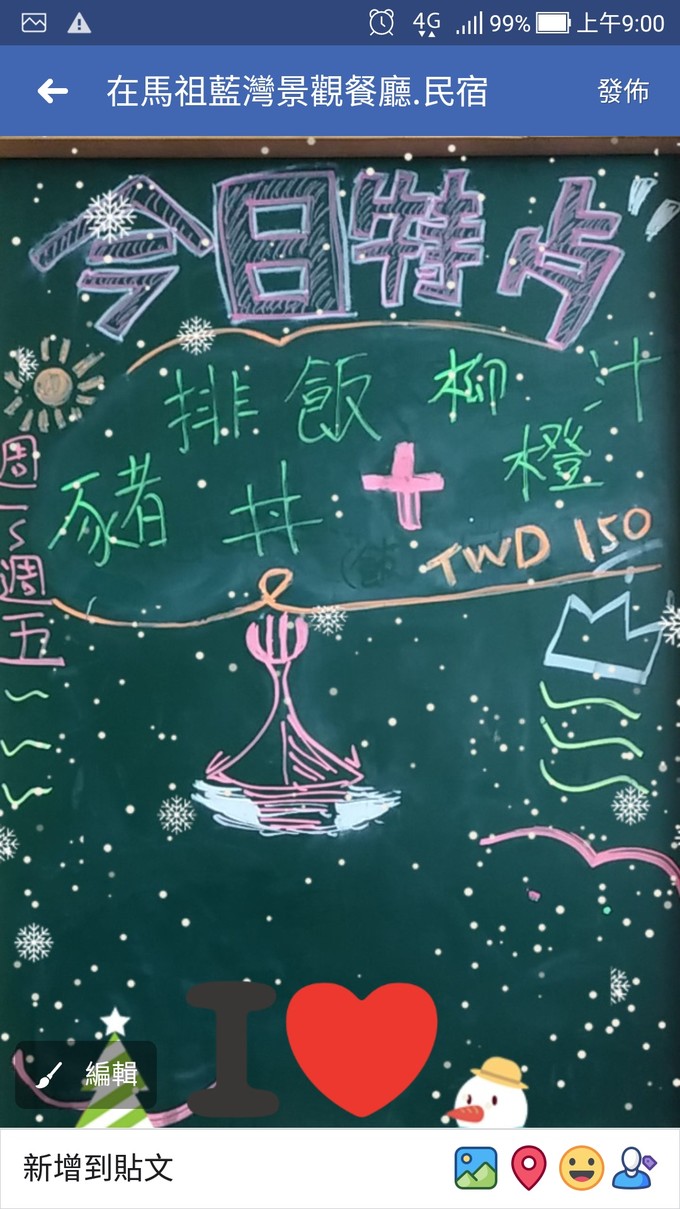 4G 99% 上午9:00
在馬祖藍灣景觀餐廳.民宿 發佈
今日特点
豬排丼飯+柳橙汁
TWD 150
週一~週五
I
編輯
新增到貼文